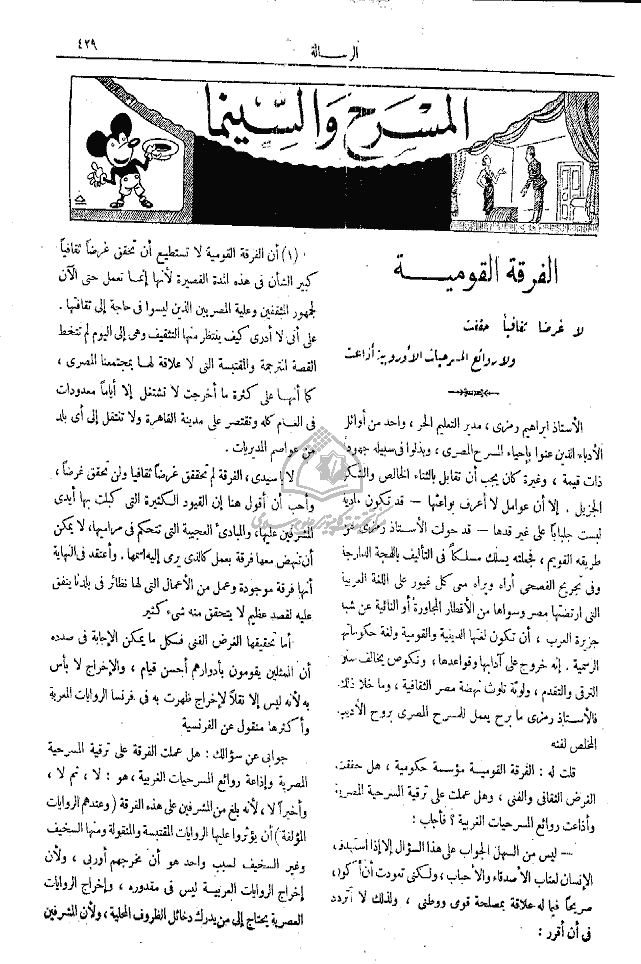 ٤٣٩
الرسالة
المسرح والسينما
الفرقة القومية
لا غرضا ثقافيا حققت
ولا روائع المسرحيات الأوروبية أذاعت
الأستاذ ابراهيم رمزى ، مدير التعليم الحر ، واحد من أوائل
الأدباء الذين عنوا بإحياء المسرح المصرى ، وبذلوا فى سبيله جهوداً
ذات قيمة ، وغيرة كان يجب أن تقابل بالثناء الخالص والشكر
الجزيل . إلا أن عوامل لا أعرف بواعثها — قد تكون مادية
لبست جلباباً على غير قدها — قد حولت الأستاذ رمزى عن
طريقه القويم ، فجعلته يسلك مسلكاً فى التأليف باللهجة الدارجة
وفى تجريح الفصحى أراه ويراه معى كل غيور على اللغة العربية
التى ارتضتها مصر وسواها من الأقطار المجاورة أو النائية عن شبه
جزيرة العرب ، أن تكون لغتها الدينية والقومية ولغة حكوماتها
الرسمية . إنه خروج على آدابها وقواعدها ، ونكوص يخالف سنن
الترقى والتقدم ، ولوثة تلوث نهضة مصر الثقافية ، وما خلا ذلك
فالأستاذ رمزى ما برح يعمل للمسرح المصرى بروح الأديب
المخلص لفنه
قلت له : الفرقة القومية مؤسسة حكومية ، هل حققت
الغرض الثقافى والفنى ، وهل عملت على ترقية المسرحية المصرية
وأذاعت روائع المسرحيات الغربية ؟ فأجاب :
— ليس من السهل الجواب على هذا السؤال إلا إذا استهدف
الإنسان لعتاب الأصدقاء والأحباب ، ولكنى تعودت أن أكون
صريحاً فيما له علاقة بمصلحة قومى ووطنى ، ولذلك لا أتردد
فى أن أقرر :
(١) أن الفرقة القومية لا تستطيع أن تحقق غرضاً ثقافياً
كبير الشأن فى هذه المدة القصيرة لأنها إنما تعمل حتى الآن
لجمهور المثقفين وعلية المصريين الذين ليسوا فى حاجة إلى ثقافتها .
على أنى لا أدرى كيف ينتظر منها التثقيف وهى إلى اليوم لم تتخط
القصة المترجمة والمقتبسة التى لا علاقة لها بمجتمعنا المصرى ،
كما أنها على كثرة ما أخرجت لا تشتغل إلا أياماً معدودات
فى العام كله وتقتصر على مدينة القاهرة ولا تنتقل إلى أى بلد
من عواصم المديريات .
لا يا سيدى ، الفرقة لم تحقق غرضاً ثقافيا ولن تحقق غرضاً ،
وأحب أن أقول هنا إن القيود الكثيرة التى كبلت بها أيدى
المشرفين عليها، والمبادئ العجيبة التى تتحكم فى مراميها، لا يمكن
أن تنهض معها فرقة بعمل كالذى يرمى إليه اسمها . وأعتقد فى النهاية
أنها فرقة موجودة وعمل من الأعمال التى لها نظائر فى بلدنا ينفق
عليه لقصد عظيم لا يتحقق منه شىء كثير
أما تحقيقها الغرض الفنى فكل ما يمكن الإجابة فى صدده
أن الممثلين يقومون بأدوارهم أحسن قيام ، والإخراج لا بأس
به لأنه ليس إلا نقلاً لإخراج ظهرت به فى فرنسا الروايات المعربة
وأكثرها منقول عن الفرنسية
جوابى عن سؤالك : هل عملت الفرقة على ترقية المسرحية
المصرية وإذاعة روائع المسرحيات الغربية ، هو : لا ، ثم لا ،
وأخيراً لا ، لأنه بلغ من المشرفين على هذه الفرقة (وعندهم الروايات
المؤلفة) أن يؤثروا عليها الروايات المقتبسة والمنقولة ومنها السخيف
وغير السخيف لسبب واحد هو أن مخرجهم أوربى ، ولأن
إخراج الروايات العربية ليس فى مقدوره ، وإخراج الروايات
العصرية يحتاج إلى من يدرك دخائل الظروف المحلية ، ولأن المشرفين